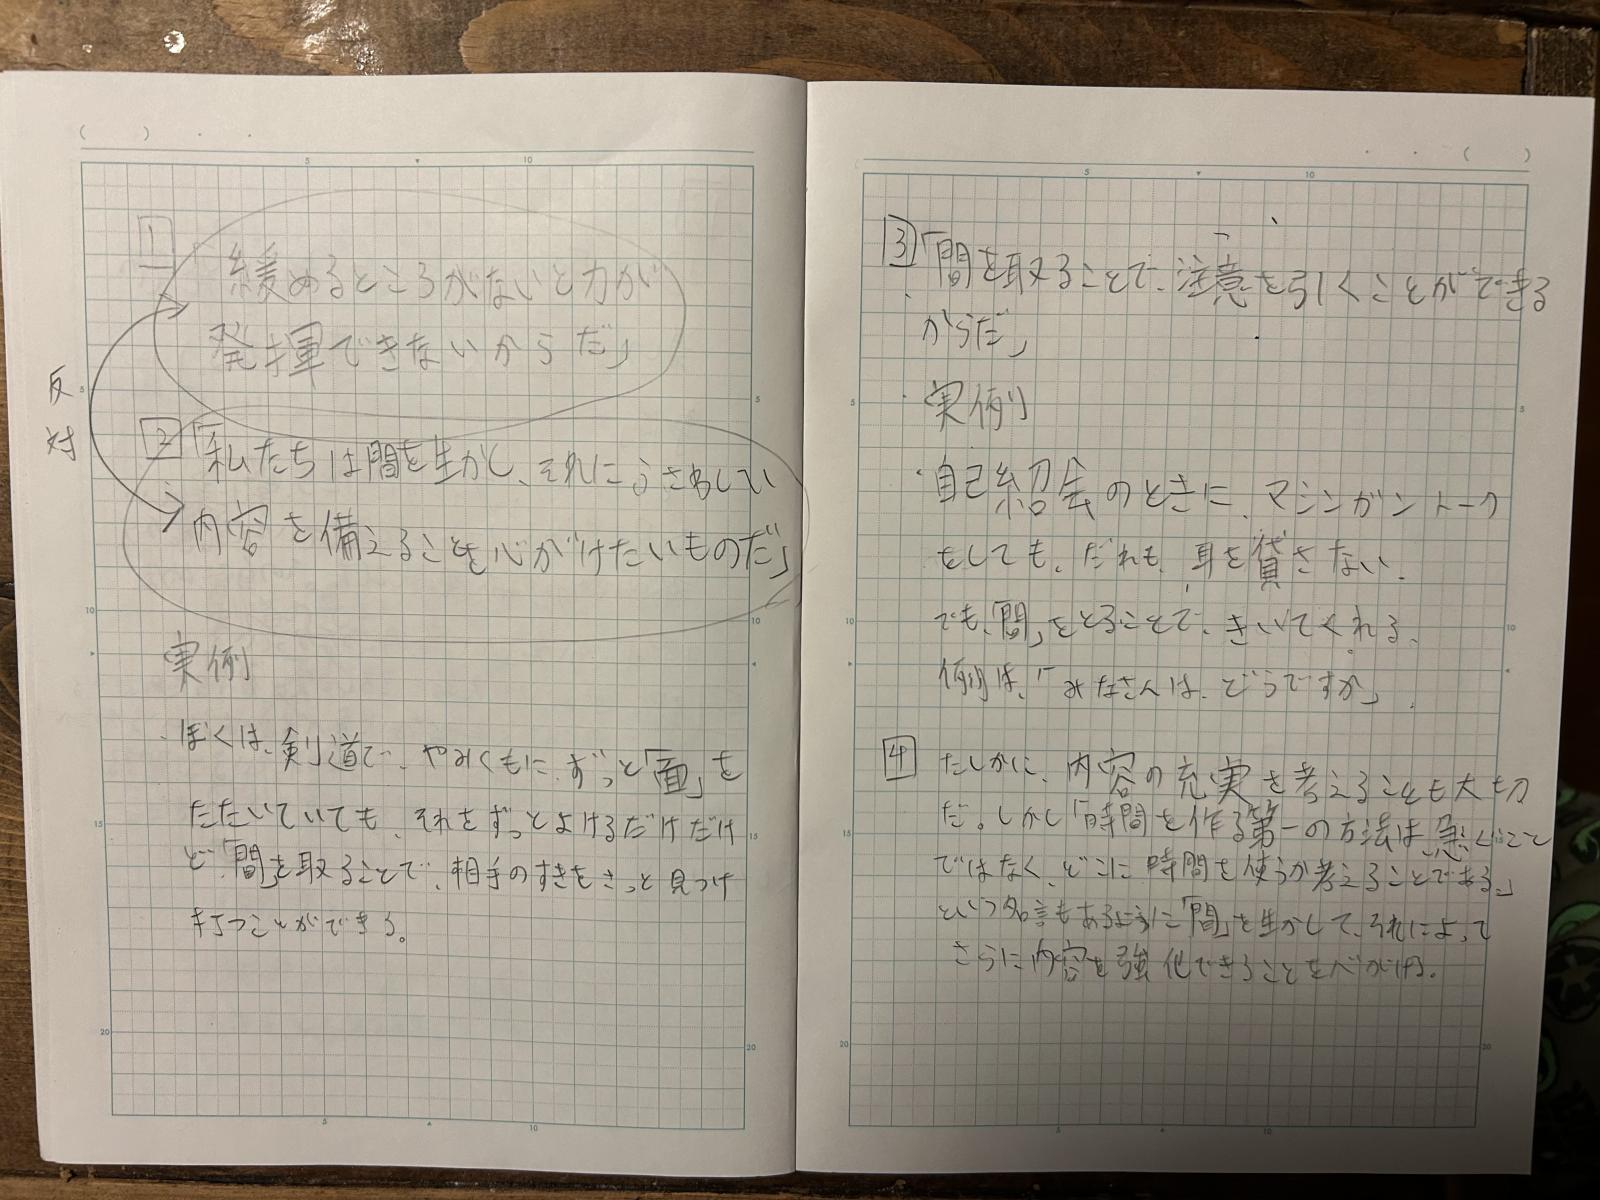 1
「緩めるところがないと力が
発揮できないからだ」
反対
2 「私たちは間を生かし、それにふさわしい
内容を備えることを心がけたいものだ」
実例
ぼくは、剣道で、やみくもに、ずっと「面」を
たたいていても、それをずっとよけるだけだけ
ど「間」を取ることで、相手のすきをさっと見つけ
打つことができる。
3 「間を取ることで、注意を引くことができる
からだ」
実例
・自己紹介のときに、マシンガントーク
をしても、だれも、耳を貸さない。
でも、「間」をとることで、きいてくれる。
例は、「みなさんは、どうですか」
4 たしかに、内容の充実を考えることも大切
だ。しかし「時間を作る第一の方法は、急ぐこと
ではなく、どこに時間を使うか考えることである。」
という名言もあるように「間」を生かして、それによって
さらに内容を強化できることを心がける。